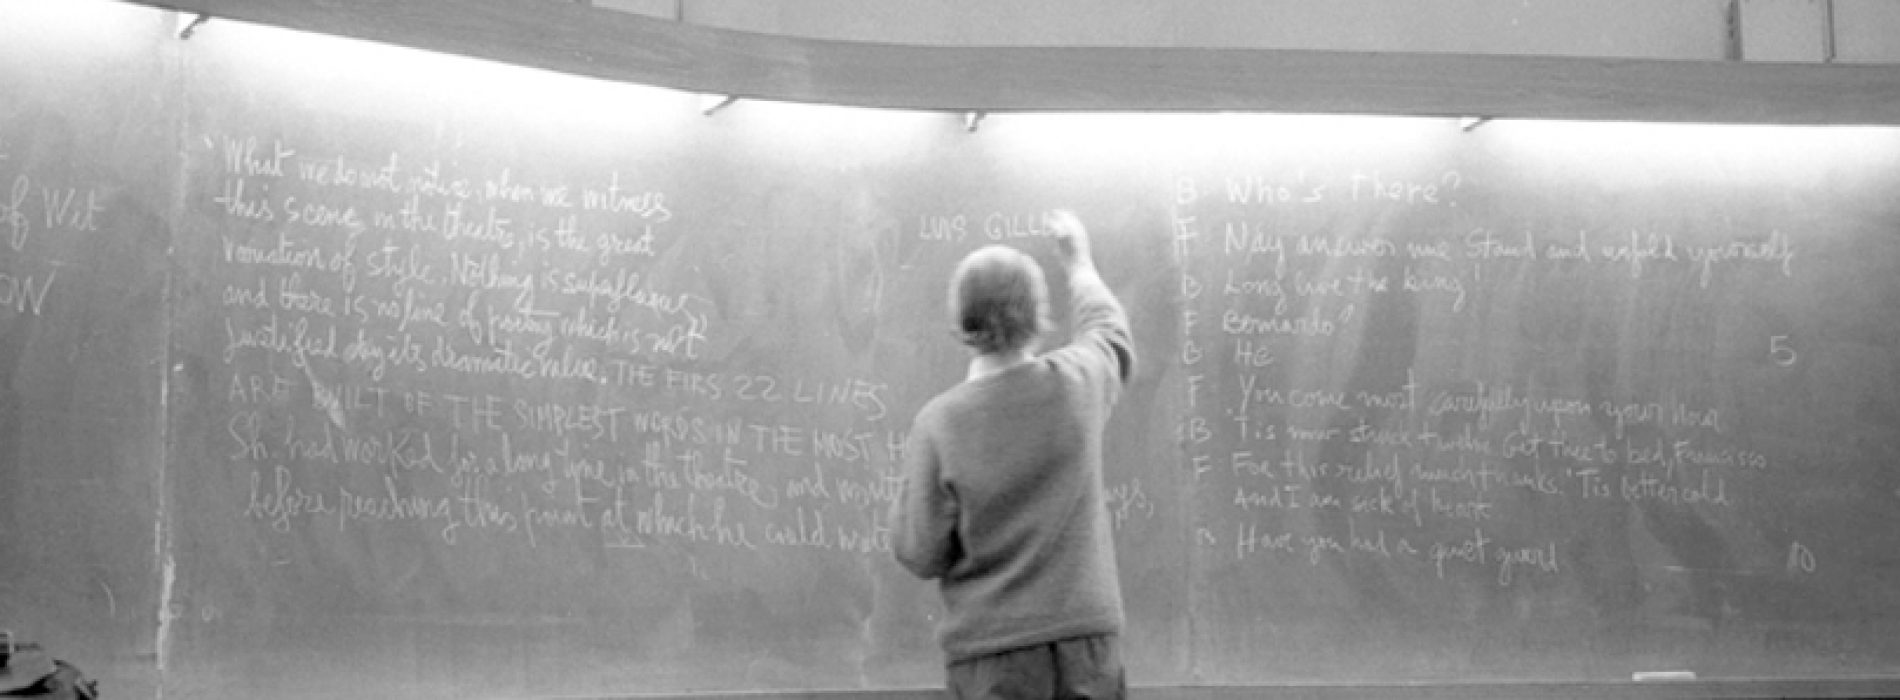 of Wit
OW
"What we do not notice, when we witness
this scene in the theatre, is the great
variation of style. Nothing is superfluous,
and there is no line of poetry which is not
justified by its dramatic value. THE FIRS 22 LINES
ARE BUILT OF THE SIMPLEST WORDS IN THE MOST H
Sh. had worked for a long time in the theatre, and
before reaching this point at which he could write
LUIS GILL
B. Who's There?
F Nay answer me Stand and unfold yourself
B Long live the king!
F Bernardo?
B He 5
F You come most carefully upon your hour
B Tis now struck twelve Get thee to bed, Francisco
F For this relief much thanks. 'Tis bitter cold
And I am sick of heart
Have you had a quiet guard 10